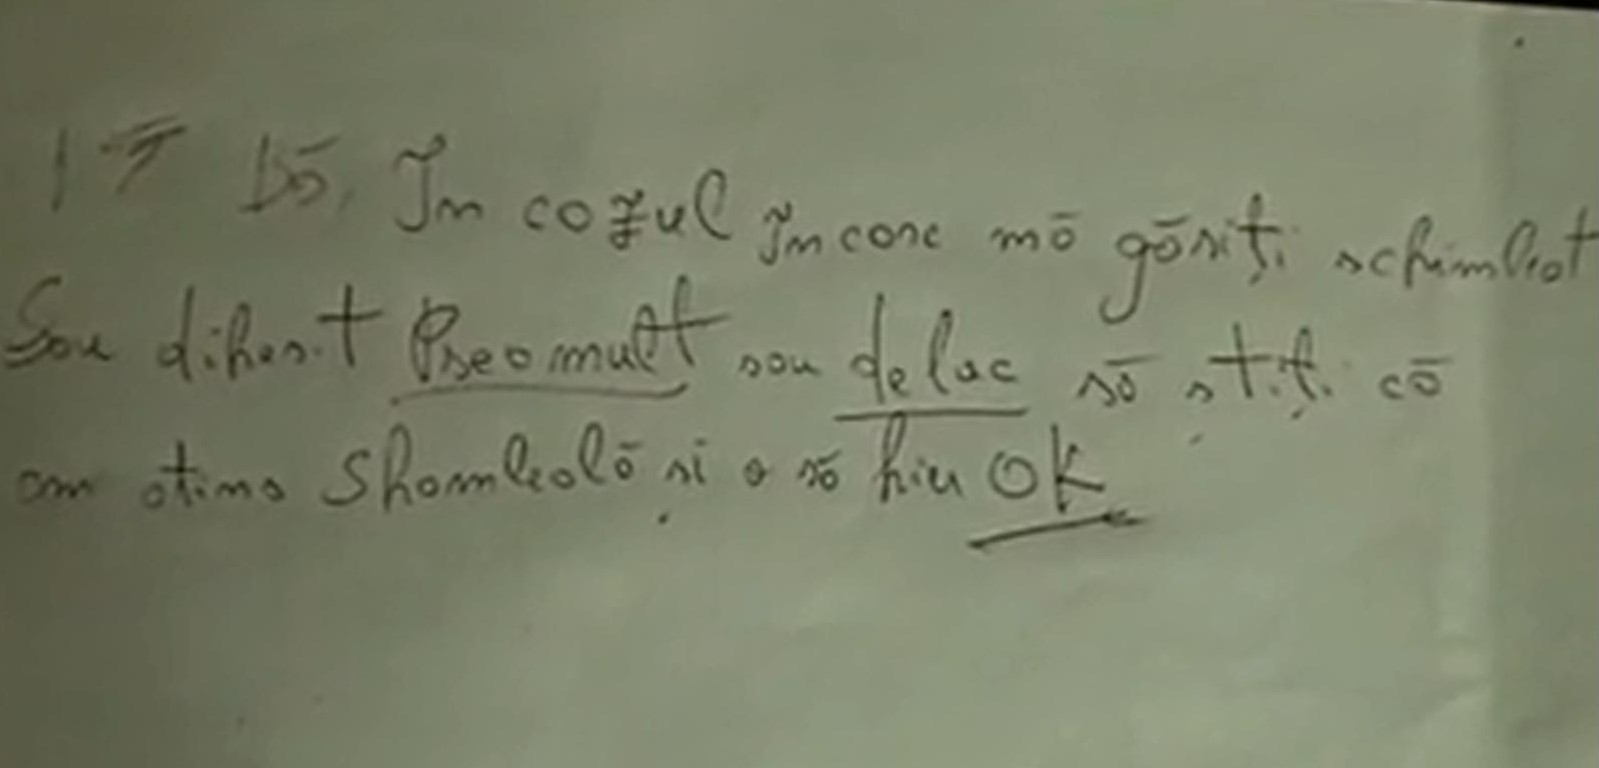 Dō, În cozul în care mō gōsiți schimbat
Sau diferit Preamult sau de loc sō știți cō
am atins Shambalō și o sō fiu OK